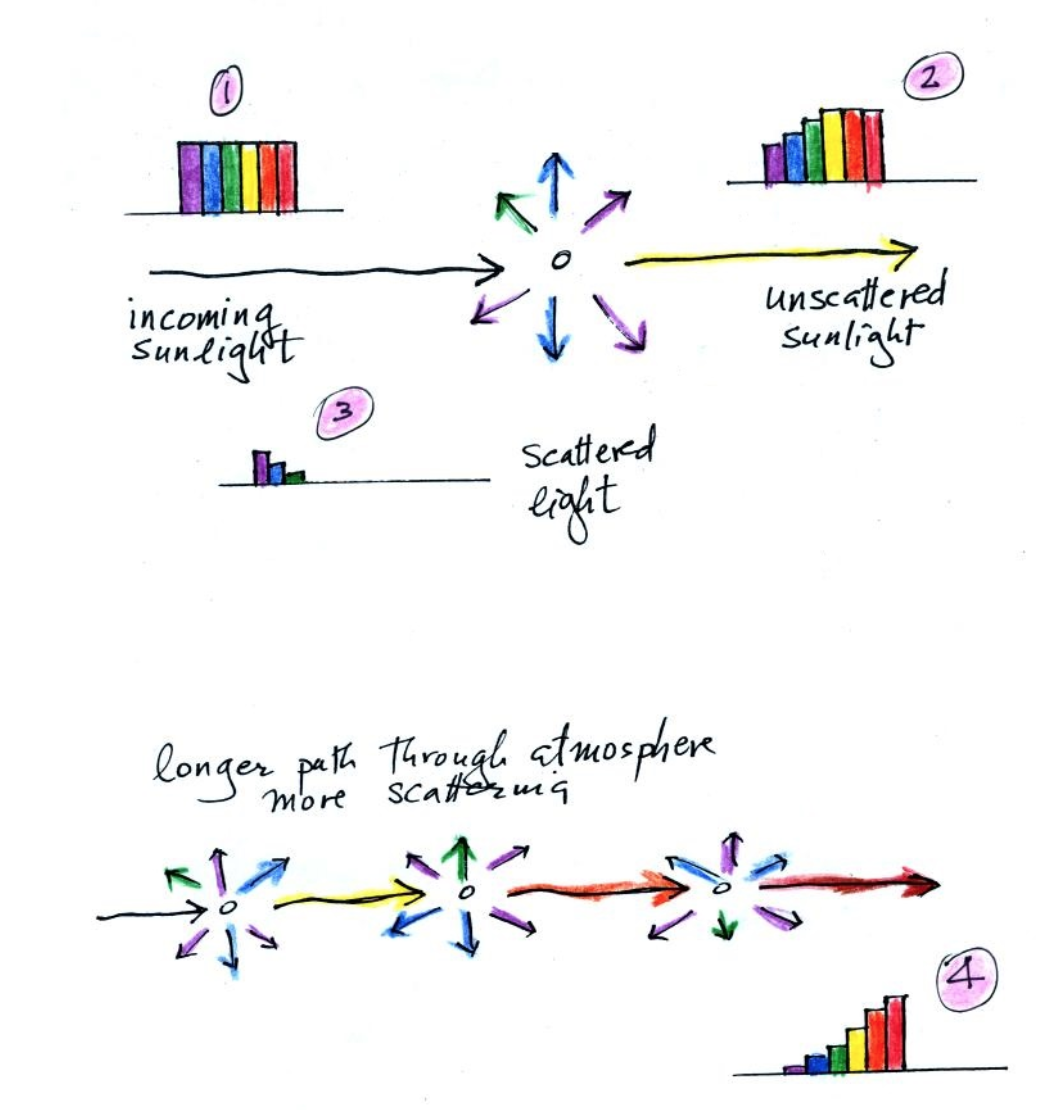 1
2
incoming
sunlight
unscattered
sunlight
3
scattered
light
longer path through atmosphere
more scattering
4